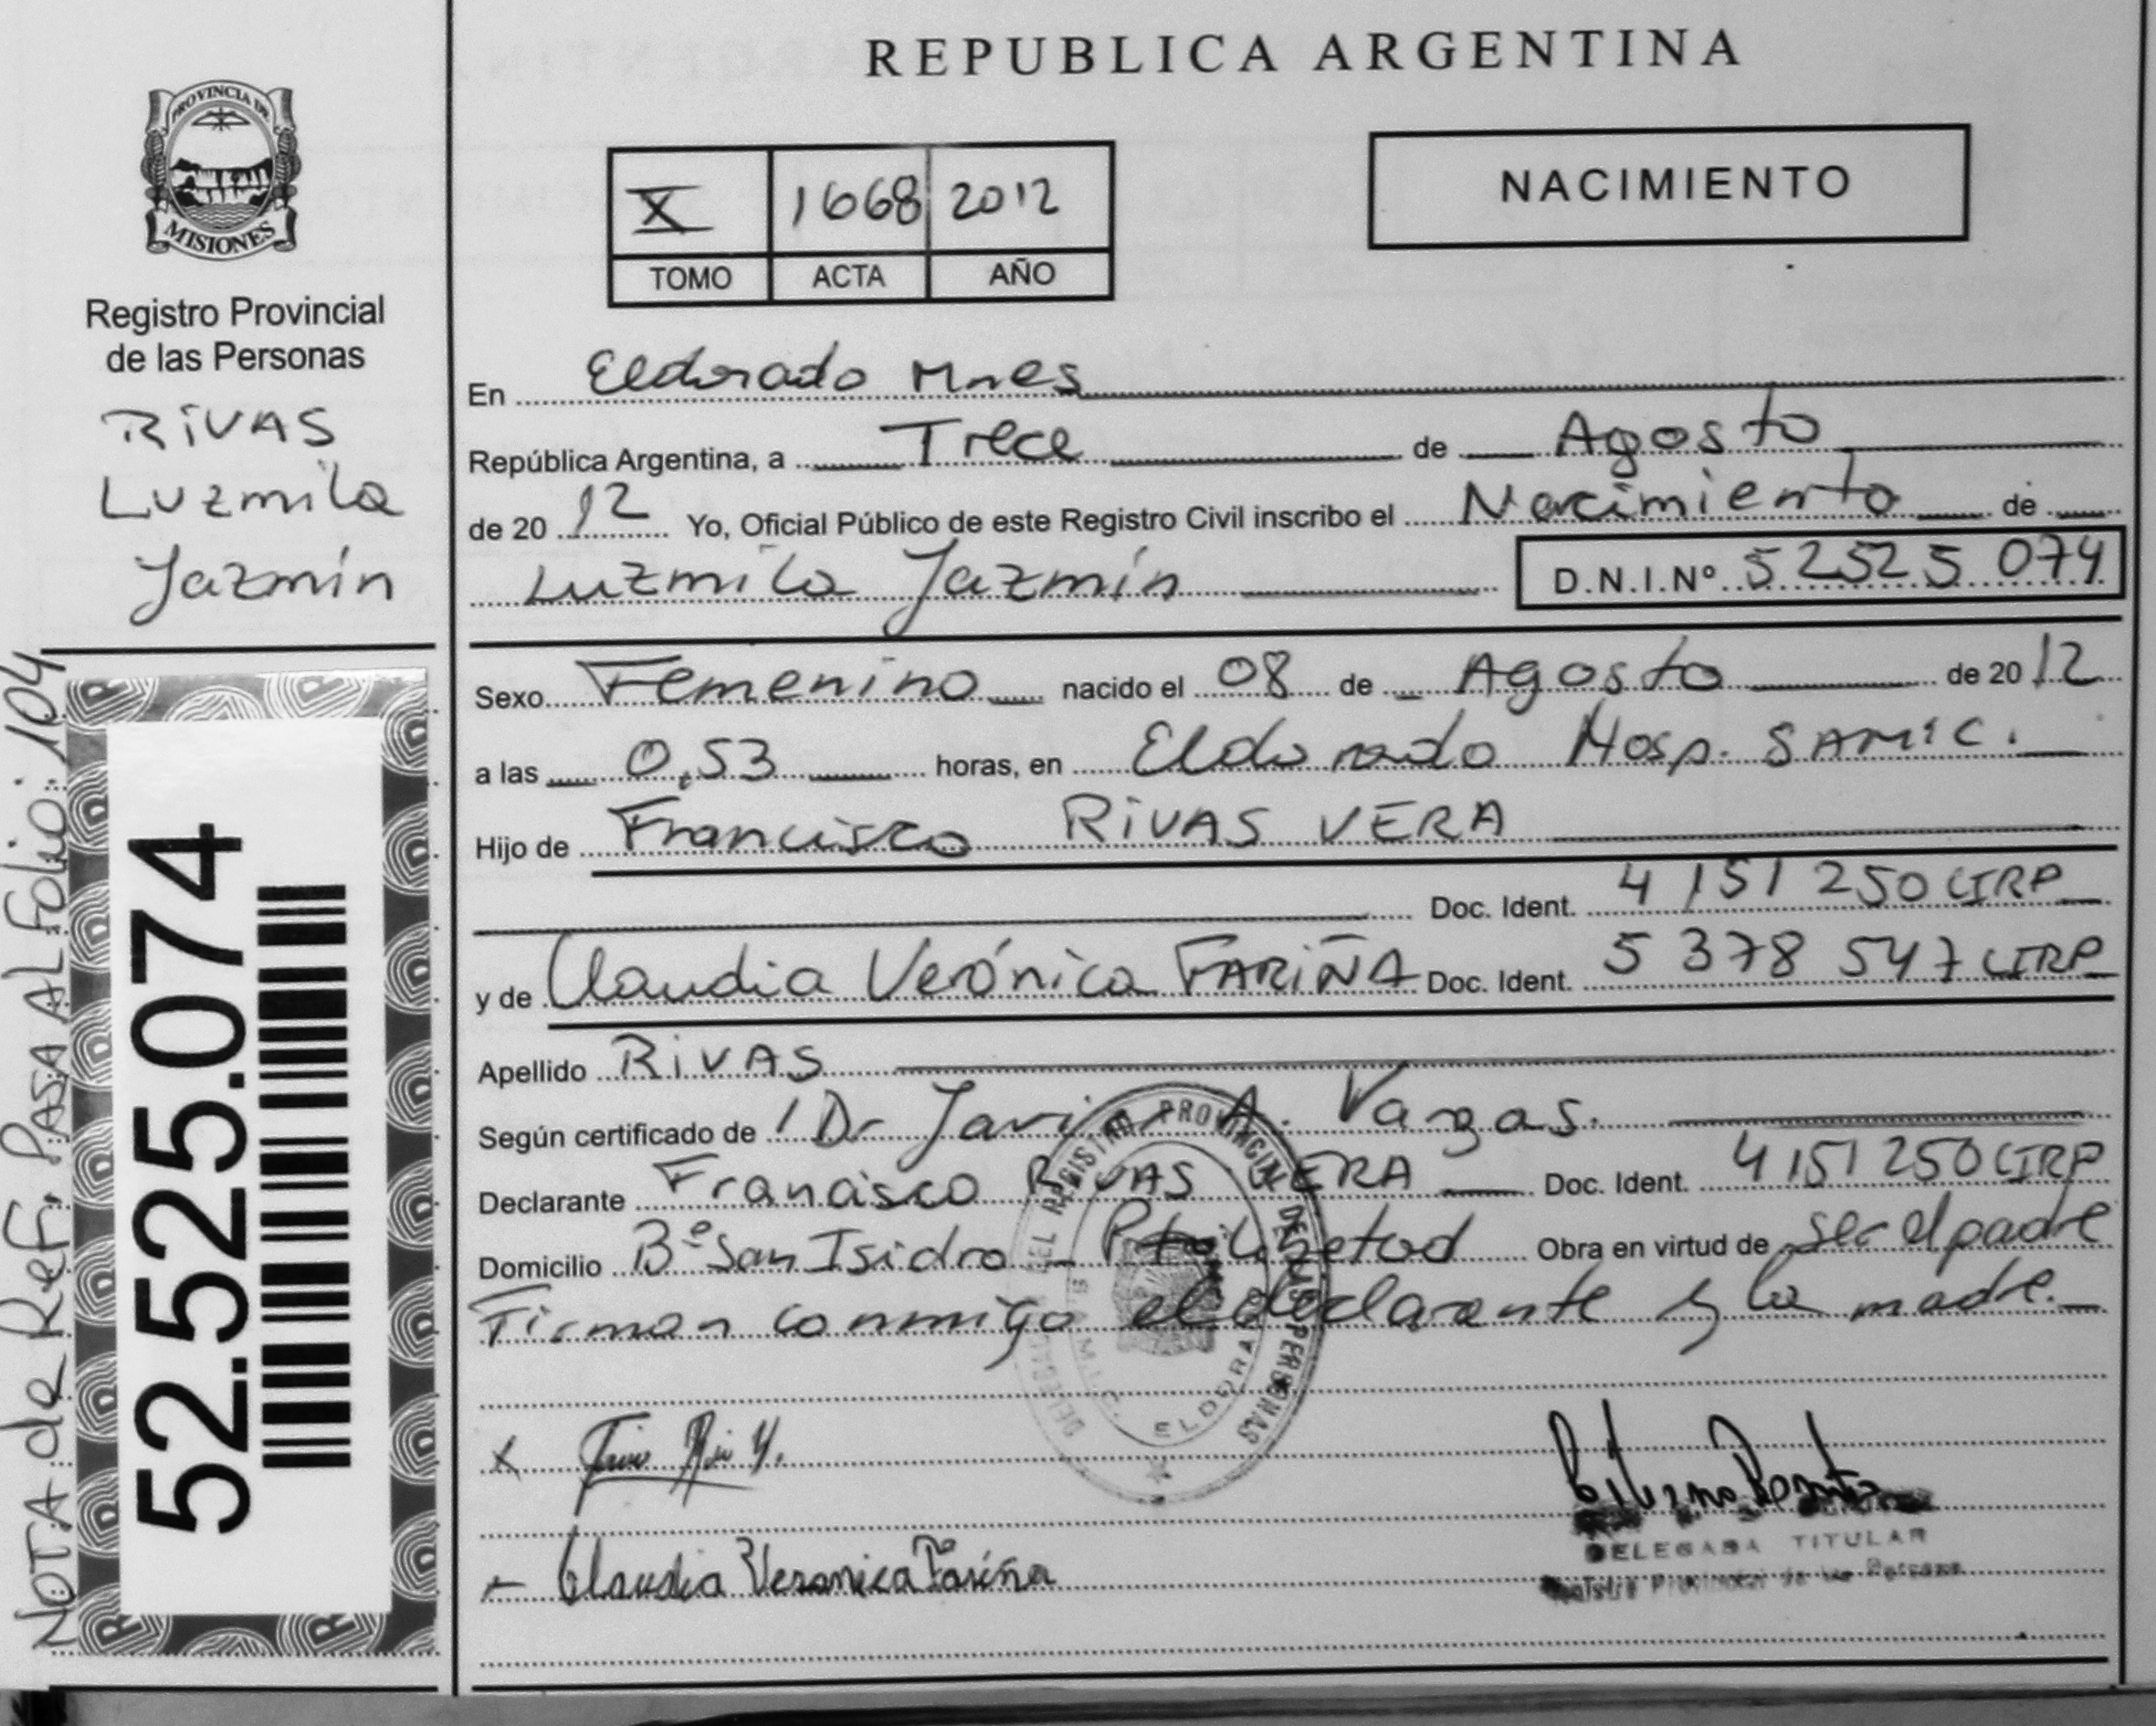 REPUBLICA ARGENTINA
PROVINCIA DE
MISIONES
Registro Provincial
de las Personas
RIVAS
Luzmila
Jazmín
NOTA de Ref. PASA AL Folio: 104
52.525.074
X 1668 2012
TOMO ACTA AÑO
NACIMIENTO
En Eldorado Mnes
República Argentina, a Trece de Agosto
de 20 12 Yo, Oficial Público de este Registro Civil inscribo el Nacimiento de
Luzmila Jazmín D.N.I.Nº 52525074
Sexo Femenino nacido el 08 de Agosto de 20 12
a las 0,53 horas, en Eldorado Hosp. SAMIC.
Hijo de Francisco RIVAS VERA
Doc. Ident. 4151250 CIRP
y de Claudia Verónica FARIÑA Doc. Ident. 5378547 CIRP
Apellido RIVAS
Según certificado de Dr Javier A. Vargas.
Declarante Francisco RIVAS VERA Doc. Ident. 4151250 CIRP
Domicilio Bº San Isidro - Obra en virtud de ser el padre
Firman conmigo el declarante y la madre.
REGISTRO PROVINCIAL DE LAS PERSONAS
ELDORADO
Claudia Veronica Fariña
DELEGADA TITULAR